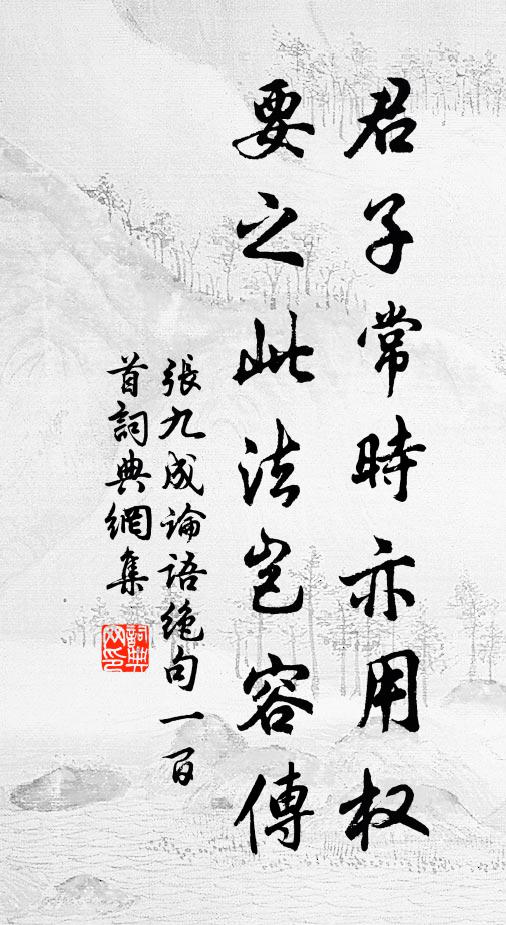 君子常時亦用权
要之此法岂容傳
張九成論語绝句一百
首詞典網集
詞典
网印